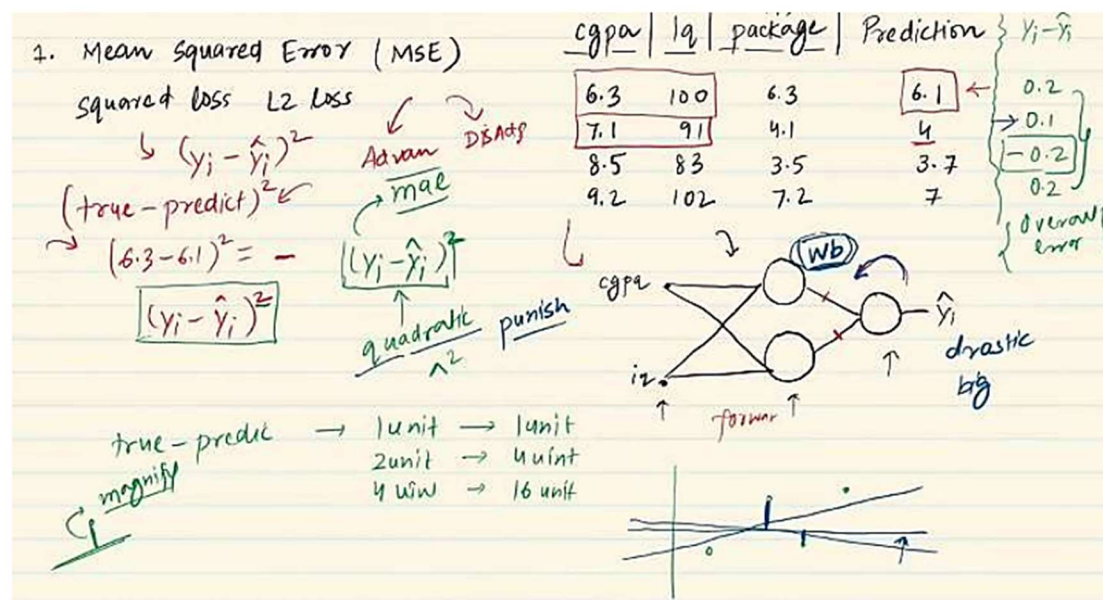 1. Mean Squared Error (MSE)
squared loss L2 loss
(yi - ŷi)²
(true - predict)²
(6.3 - 6.1)² = -
(yi - ŷi)²
Advan
DisAdv
mae
(yi - ŷi)²
quadratic
^2
punish
true - predict → 1unit → 1unit
2unit → 4uint
4 → 16 unit
magnify
cgpa | Iq | package | Prediction yi - ŷi
6.3 100 6.3 6.1 ← 0.2
7.1 91 4.1 4 → 0.1
8.5 83 3.5 3.7 -0.2
9.2 102 7.2 7 0.2
overall
error
wb
cgpa
iq
ŷi
drastic
big
forwar